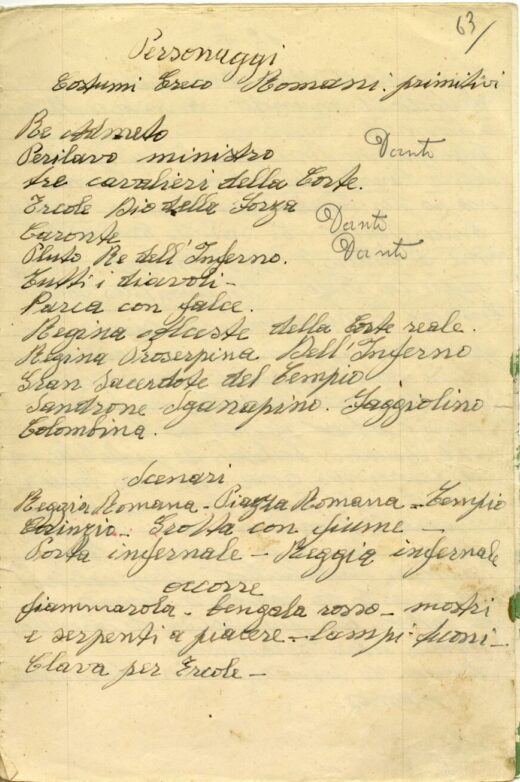 63/
Personaggi
Costumi Greco Romani. primitivi
Re Admeto
Perilavo ministro Dante
tre cavalieri della Corte.
Ercole Dio della Forza
Caronte Dante
Pluto Re dell'Inferno. Dante
Tutti i diavoli -
Parca con falce.
Regina Alceste della Corte reale.
Regina Proserpina Dell'Inferno
Gran Sacerdote del Tempio
Sandrone Sganapino. Faggiolino -
Colombina.
Scenari
Reggia Romana - Piazza Romana - Tempio
Corinzio - Grotta con fiume -
Porta infernale - Reggia infernale
occorre
fiammarola - bengala rosso - mostri
e serpenti a piacere - lampi tuoni -
Clava per Ercole -